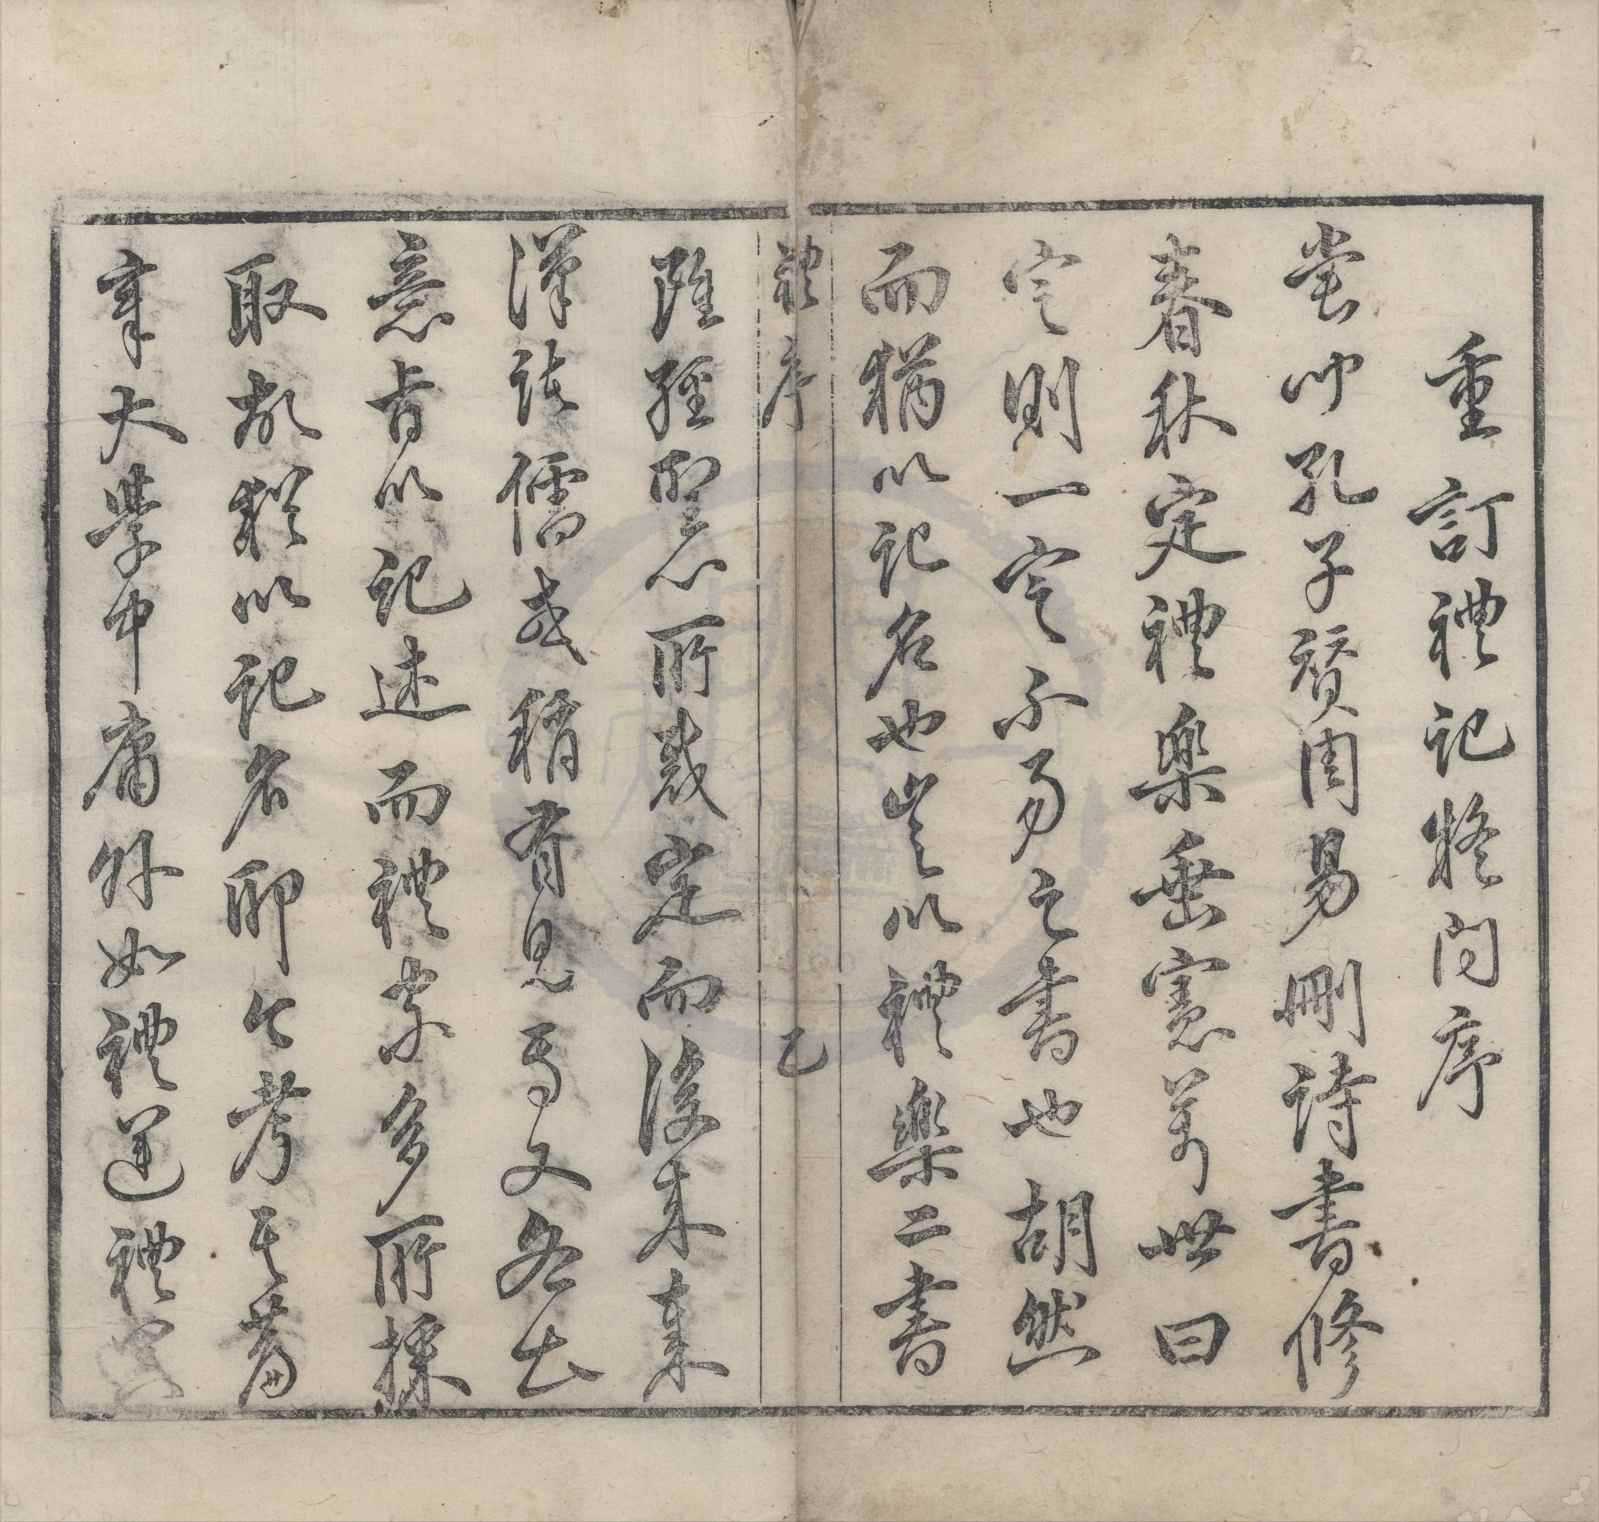 重訂禮記疑問序
嘗聞孔子贊周易刪詩書修
春秋定禮樂垂憲萬世曰
定則一定不易之書也胡然
而猶以記名也豈以禮樂二書
雖經聖心所裁定而後來秦
漢諸儒或稍有見焉又各出
意旨以記述而禮家多所採
取故猶以記名耶今考其篇
章大學中庸外如禮運禮
禮序
乙